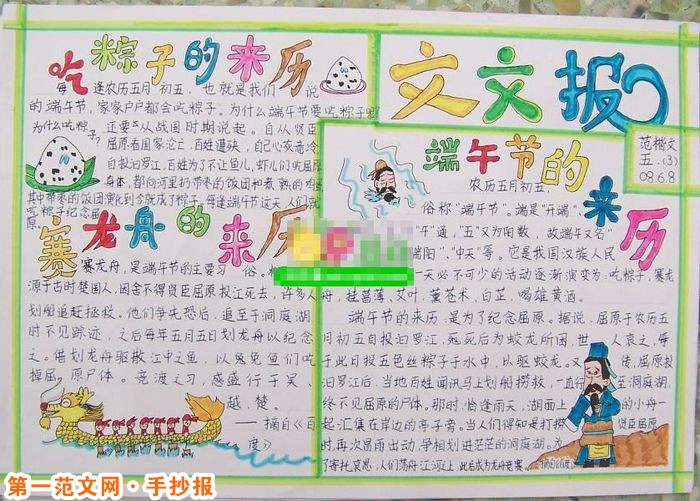 吃粽子的来历
每逢农历五月初五,也就是我们说
的端午节,家家户户都会吃粽子。为什么端午节要吃粽子呢
为什么吃粽子?
还要从战国时期说起。自从贤臣
屈原看国家论亡,百姓遭映,自己心灰意冷
自投汨罗江,百姓为了不让鱼儿,虾儿们吃屈原
身体,都向河里扔带枣的饭团和煮熟的鸡蛋
其中带枣的饭团演化到今就成了粽子。每逢端午节这天,人们就
吃粽子纪念屈
原。
赛龙舟的来历
赛龙舟,是端午节的主要习俗。
源于古时楚国人,因舍不得贤臣屈原投江死去,许多人
划船追赶拯救。他们争先恐后,追至于洞庭湖
时不见踪迹,之后每年五月五日划龙舟以纪念
之。借划龙舟驱散江中之鱼,以免鱼们吃
掉屈原尸体。竞渡之习,盛行于吴、
越、楚。
——摘自《百
度》
文文报
范楷文
五.(3)
08.6.8
端午节的来历
农历五月初五,
俗称"端午节"。端是"开端"
"午"通,"五"又为阳数,故端午又名"
端阳"、"中天"等。它是我国汉族人民
一天必不可少的活动逐渐演变为:吃粽子,赛龙
舟,挂菖蒲,艾叶,薰苍术,白芷,喝雄黄酒。
端午节的来历,是为了纪念屈原。据说,屈原于农历五
月初五自投汨罗江,死后为蛟龙所困,世人哀之,每
于此日投五色丝粽子于水中,以驱蛟龙。又传,屈原投
汨罗江后,当地百姓闻讯马上划船捞救,一直行至洞庭湖,
终不见屈原的尸体。那时,恰逢雨天,湖面上的小舟一
起汇集在岸边的亭子旁。当人们得知是打捞贤臣屈原
时,再次冒雨出动,争相划进茫茫的洞庭湖。为
了寄托哀思,人们荡舟江河上,此后成为龙舟竞赛。
第一范文网·手抄报